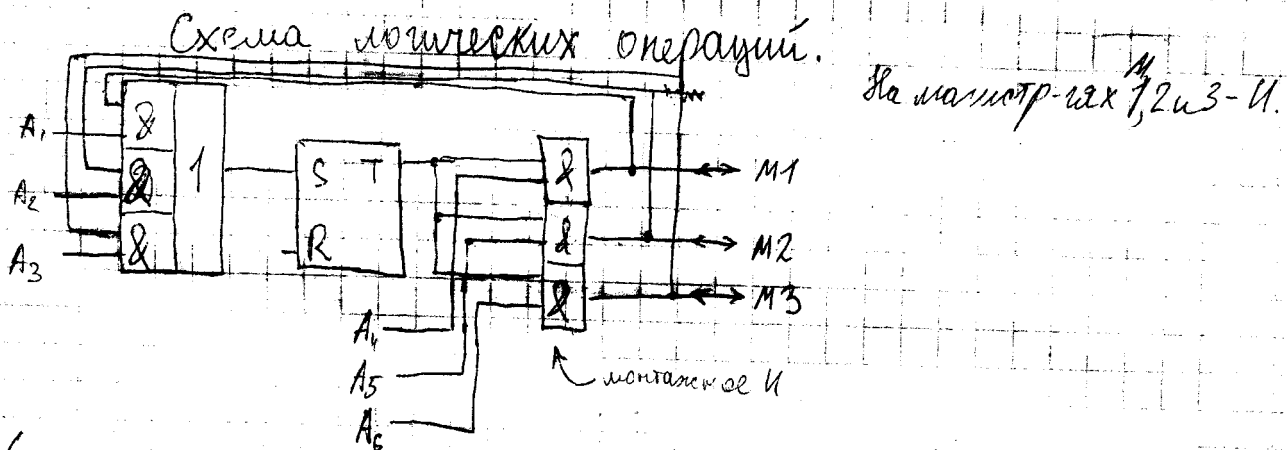 Схема логических операций.
На магистр-лях М1, 2 и 3 - И.
A1
&
1
A2
&
A3
&
S T
R
&
&
&
M1
M2
M3
A4
A5
A6
монтажное И